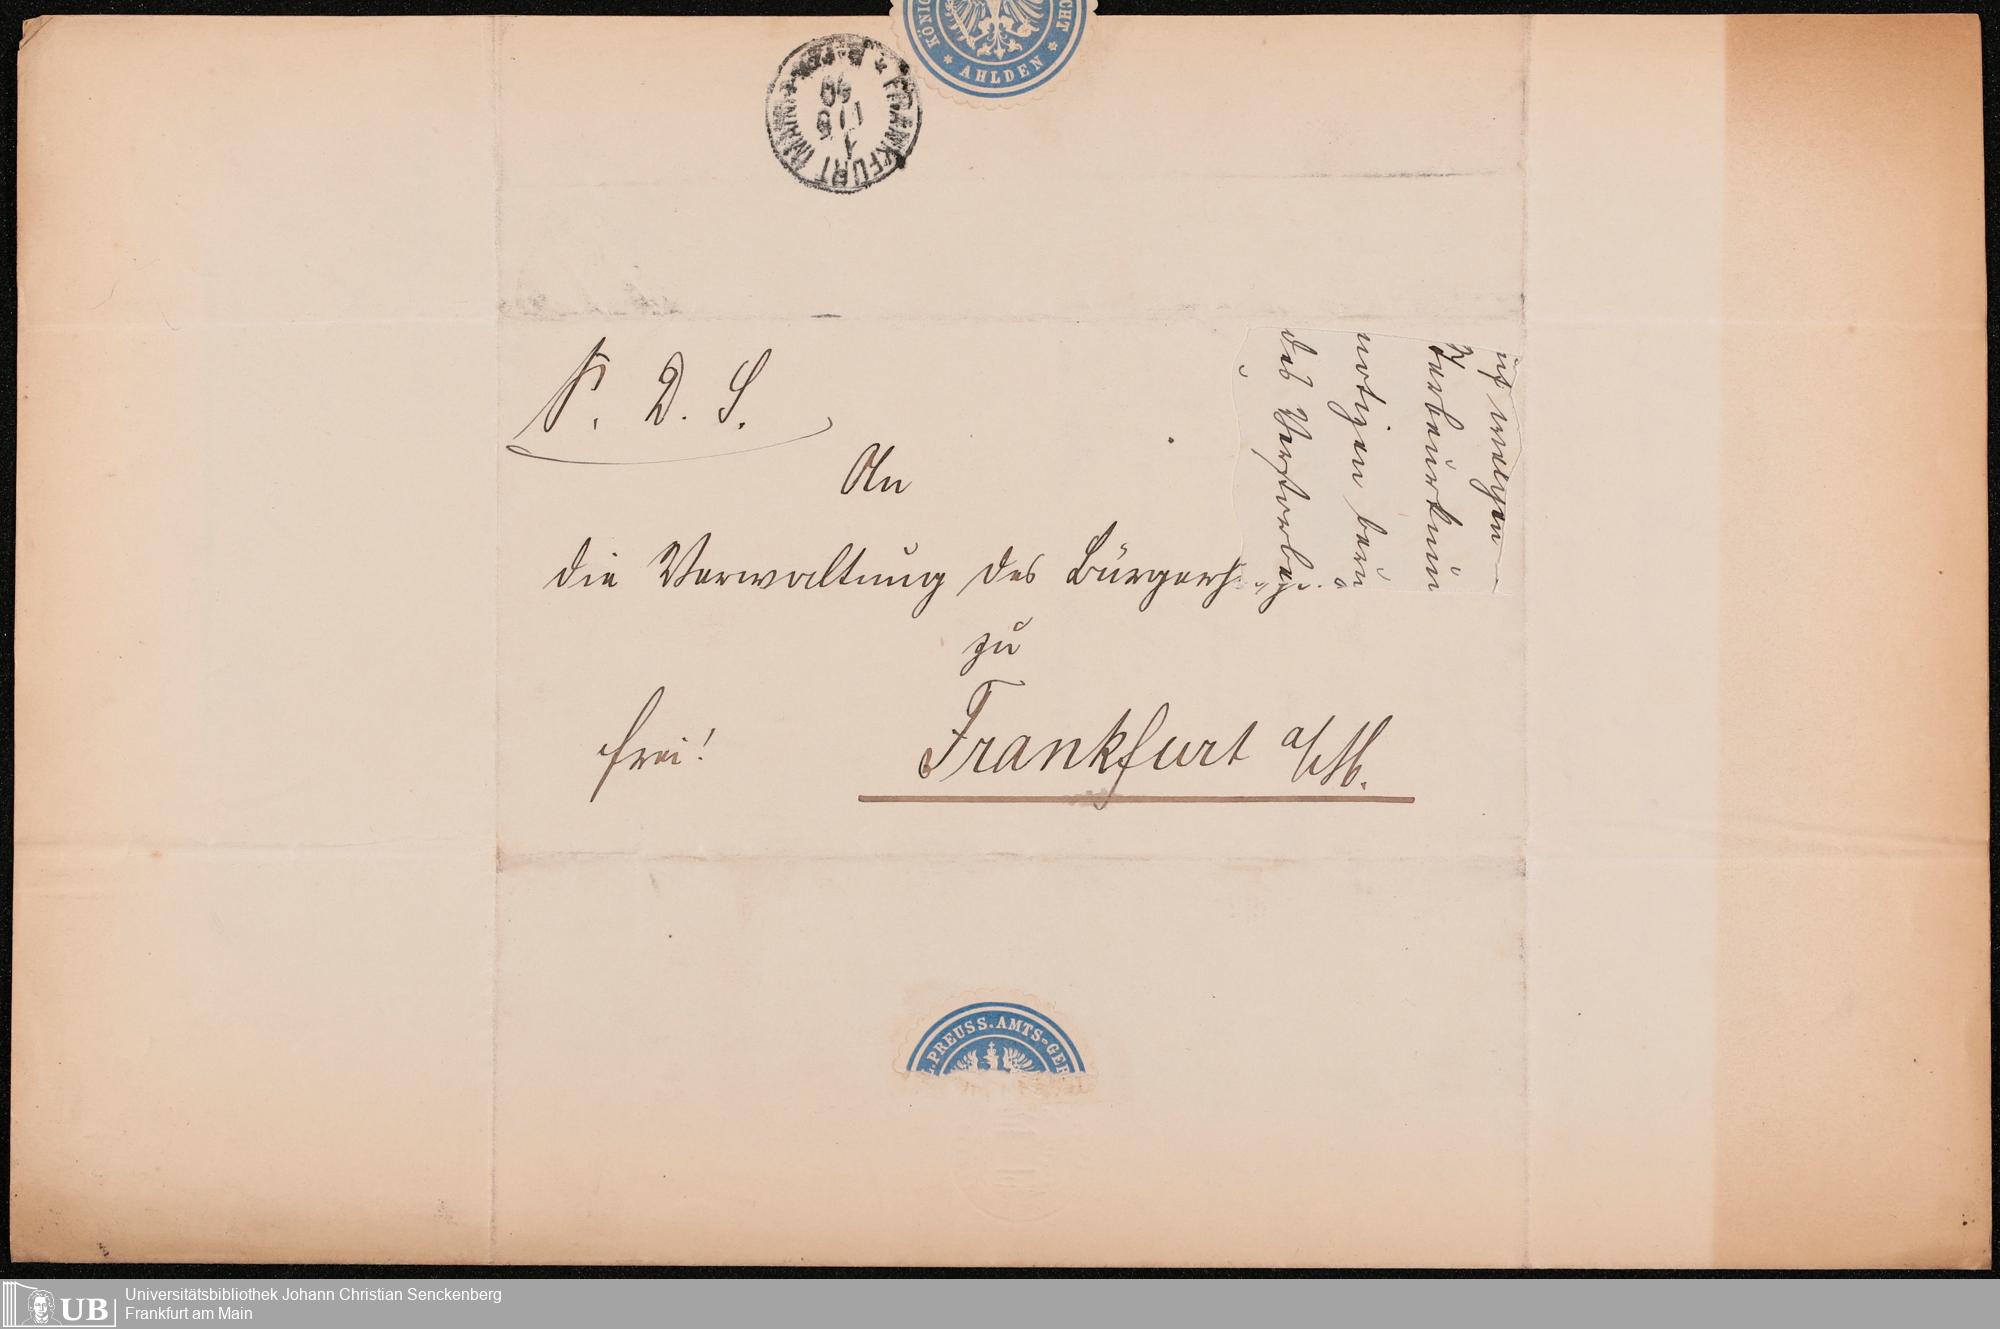 KÖNIG
CHT
* AHLDEN *
FRANKFURT (MAIN)
P. D. S.
An
die Verwaltung des Bürgerh
zu
frei!
Frankfurt a/M.
wegen
notigen
des Verstorbe
L. PREUSS. AMTS-GER
UB
Universitätsbibliothek Johann Christian Senckenberg
Frankfurt am Main